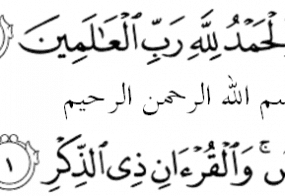 لْحَمْدُ لِلَّهِ رَبِّ الْعَالَمِينَ
سم الله الرحمن الرحيم
صٓ ۚ وَالْقُرْءَانِ ذِى الذِّكْرِ ١